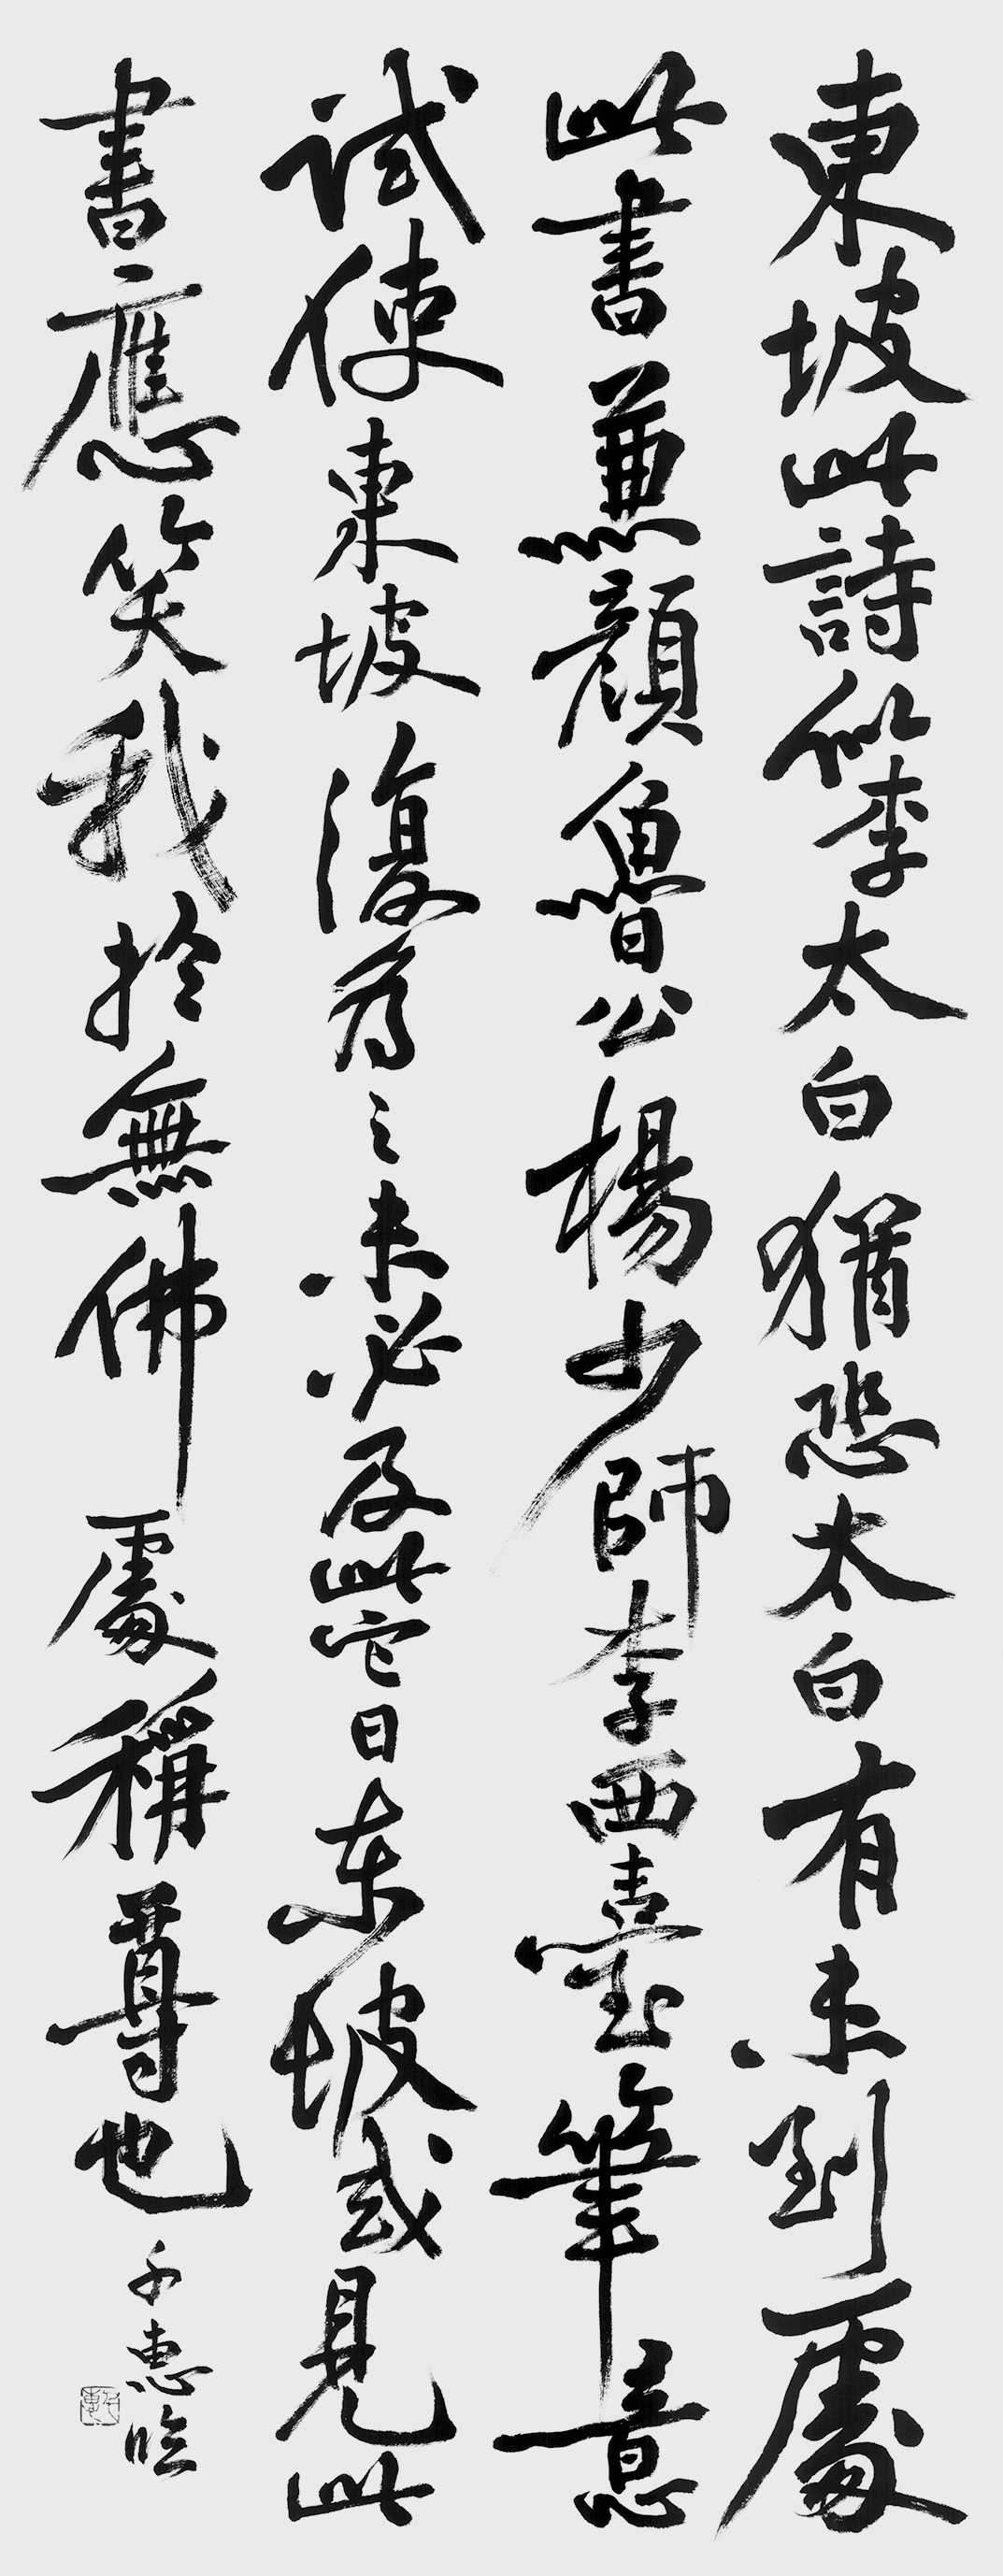 東坡此詩似李太白猶恐太白有未到處
此書兼顏魯公楊少師李西臺筆意
試使東坡復為之未必及此它日東坡或見此
書應笑我於無佛處稱尊也
千惠臨